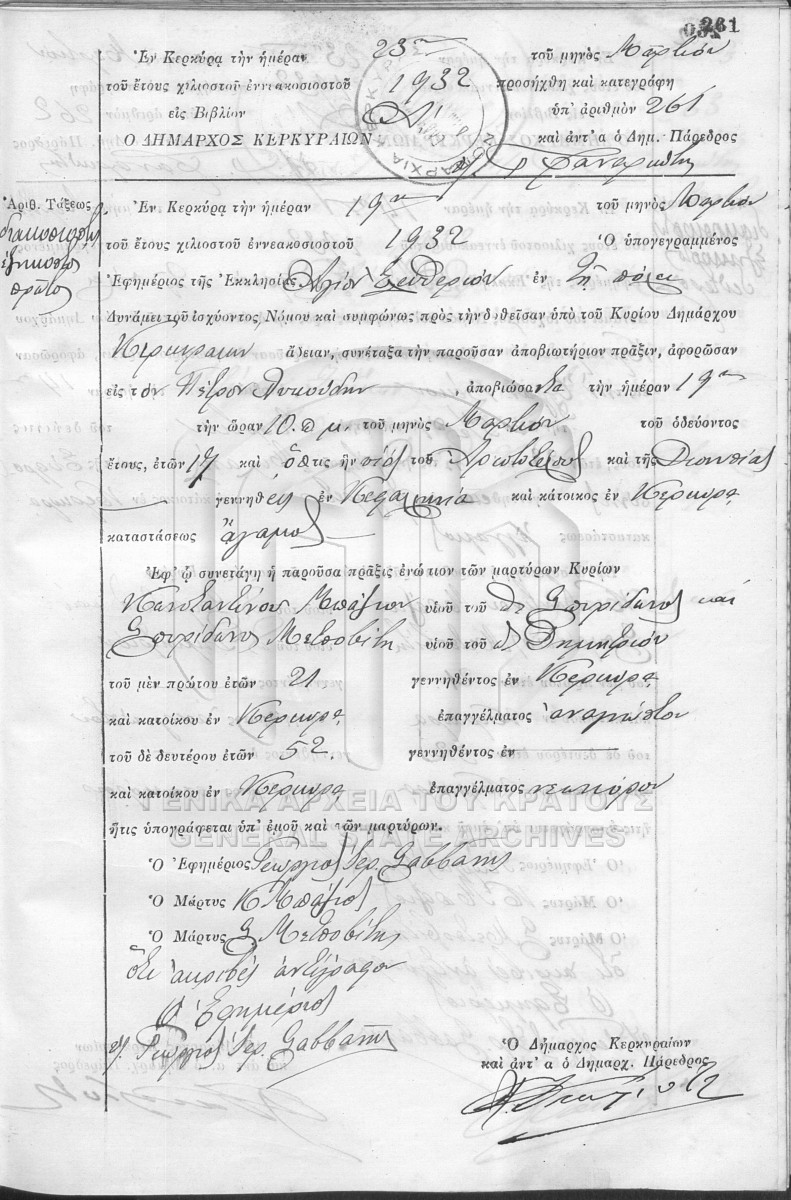 261
Ἐν Κερκύρᾳ τὴν ἡμέραν 23ην τοῦ μηνὸς Μαρτίου
τοῦ ἔτους χιλιοστοῦ ἐννεακοσιοστοῦ 1932 προσήχθη καὶ κατεγράφη
εἰς Βιβλίον Α' ὑπ' ἀριθμὸν 261
Ὁ ΔΗΜΑΡΧΟΣ ΚΕΡΚΥΡΑΙΩΝ καὶ ἀντ' α ὁ Δημ. Πάρεδρος
Ἀριθ. Τάξεως
διακοσιοστὸς
ἑξηκοστὸς
πρῶτος
Ἐν Κερκύρᾳ τὴν ἡμέραν 19ην τοῦ μηνὸς Μαρτίου
τοῦ ἔτους χιλιοστοῦ ἐννεακοσιοστοῦ 1932 Ὁ ὑπογεγραμμένος
Ἐφημέριος τῆς Ἐκκλησίας Ἁγίου Ἐλευθερίου ἐν τῇ πόλει
Δυνάμει τοῦ ἰσχύοντος Νόμου καὶ συμφώνως πρὸς τὴν δοθεῖσαν ὑπὸ τοῦ Κυρίου Δημάρχου
Κερκυραίων ἄδειαν, συνέταξα τὴν παροῦσαν ἀποβιωτήριον πρᾶξιν, ἀφορῶσαν
εἰς τὸν Πέτρον Λυκούδην, ἀποβιώσαντα τὴν ἡμέραν 19ην
τὴν ὥραν 10 π μ. τοῦ μηνὸς Μαρτίου τοῦ ὁδεύοντος
ἔτους, ἐτῶν 17 καὶ ὅστις ἦν υἱὸς τοῦ Ἀριστοτέλους καὶ τῆς
γεννηθεὶς ἐν Κεφαλληνίᾳ καὶ κάτοικος ἐν Κερκύρᾳ
καταστάσεως ἄγαμος
Ἐφ' ᾧ συνετάγη ἡ παροῦσα πρᾶξις ἐνώπιον τῶν μαρτύρων Κυρίων
Κωνσταντίνου Μπάζιου υἱοῦ τοῦ Σπυρίδωνος καὶ
Σπυρίδωνος Μετσοβίτη υἱοῦ τοῦ Δημητρίου
τοῦ μὲν πρώτου ἐτῶν 21 γεννηθέντος ἐν Κερκύρᾳ
καὶ κατοίκου ἐν Κερκύρᾳ ἐπαγγέλματος ἀναγνώστου
τοῦ δὲ δευτέρου ἐτῶν 52. γεννηθέντος ἐν
καὶ κατοίκου ἐν Κερκύρᾳ ἐπαγγέλματος νεωκόρου
ΓΕΝΙΚΑ ΑΡΧΕΙΑ ΤΟΥ ΚΡΑΤΟΥΣ
ἥτις ὑπογράφεται ὑπ' ἐμοῦ καὶ τῶν μαρτύρων.
GENERAL STATE ARCHIVES
Ὁ Ἐφημέριος Γεώργιος Ἱερ. Σαββάνης
Ὁ Μάρτυς Κ Μπάζιος
Ὁ Μάρτυς Σ Μετσοβίτης
Ὅτι ἀκριβὲς ἀντίγραφον
Ὁ Ἐφημέριος
Γεώργιος Ἱερ. Σαββάνης
Ὁ Δήμαρχος Κερκυραίων
καὶ ἀντ' α ὁ Δημαρχ. Πάρεδρος